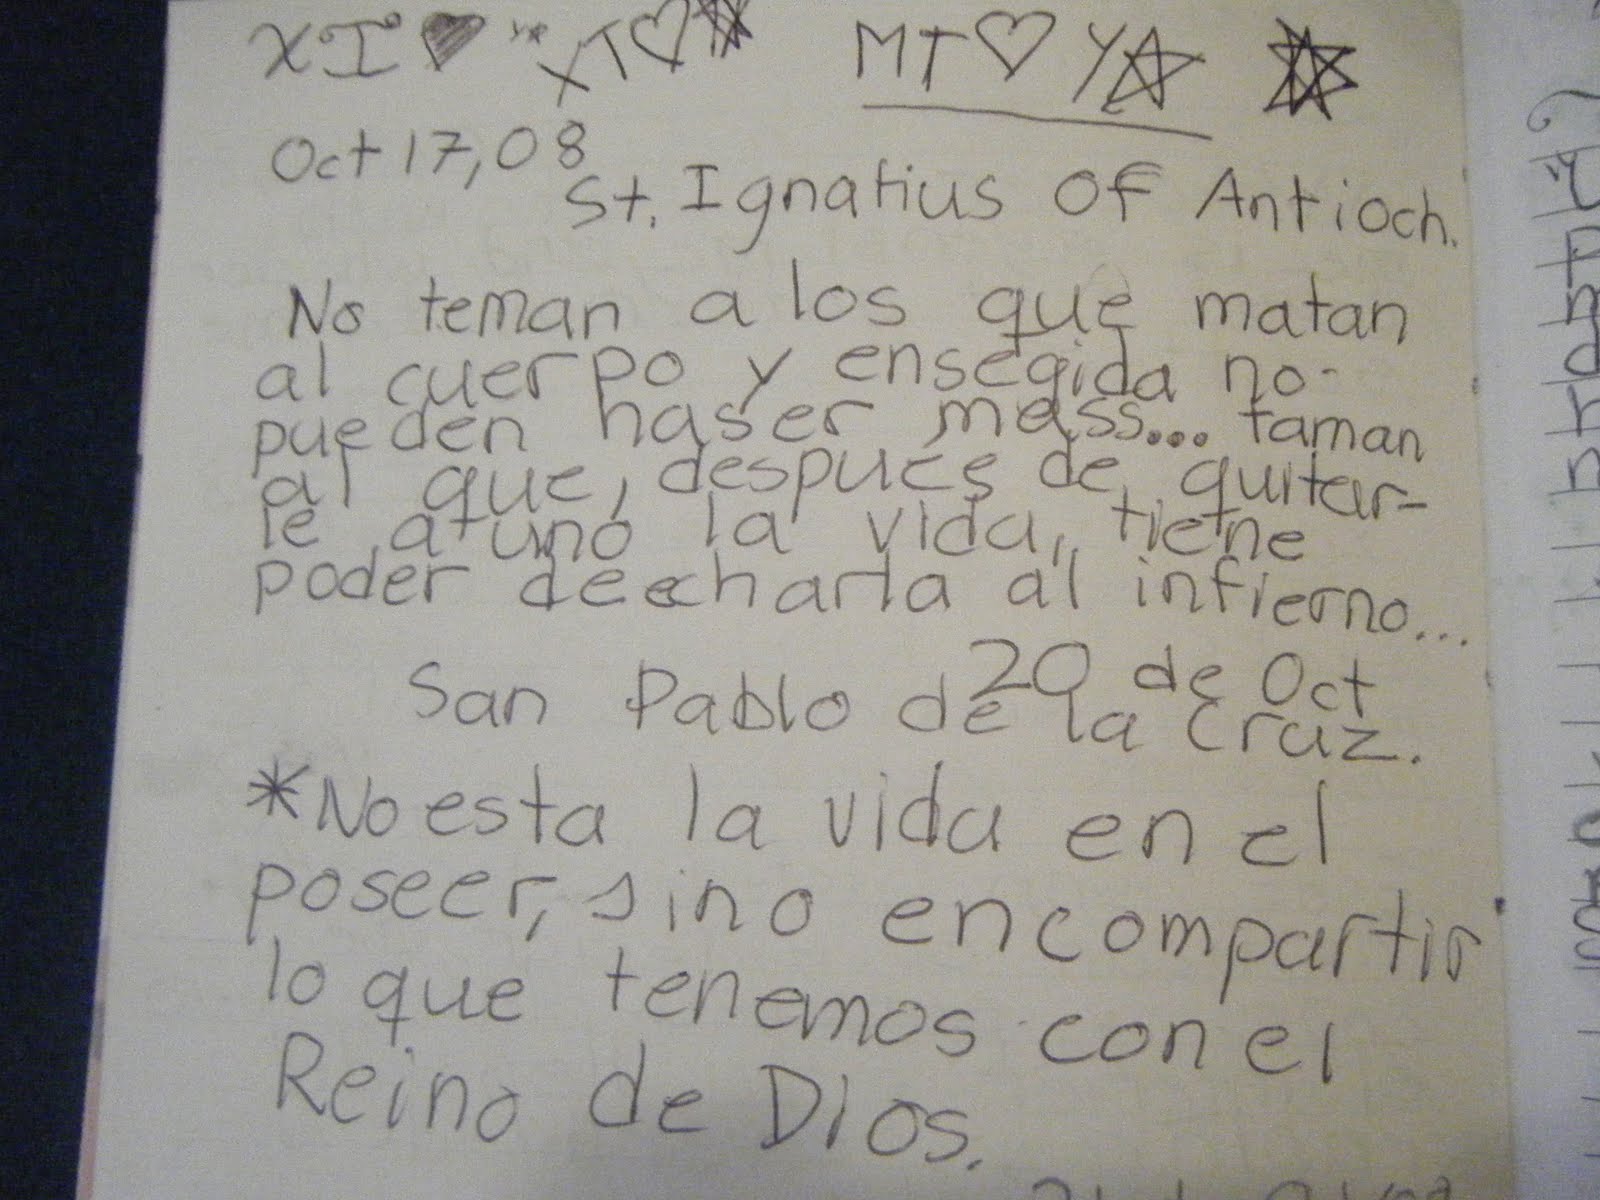 XI♥ XT♡ MT♡Y☆
Oct 17, 08
St. Ignatius Of Antioch.
No teman a los que matan
al cuerpo y ensegida no
pueden haser mass... taman
al que, despues de quitar-
le a uno la vida, tiene
poder de echarla al infierno...
20 de Oct
San Pablo de la cruz.
*No esta la vida en el
poseer, sino en compartir
lo que tenemos con el
Reino de Dios.